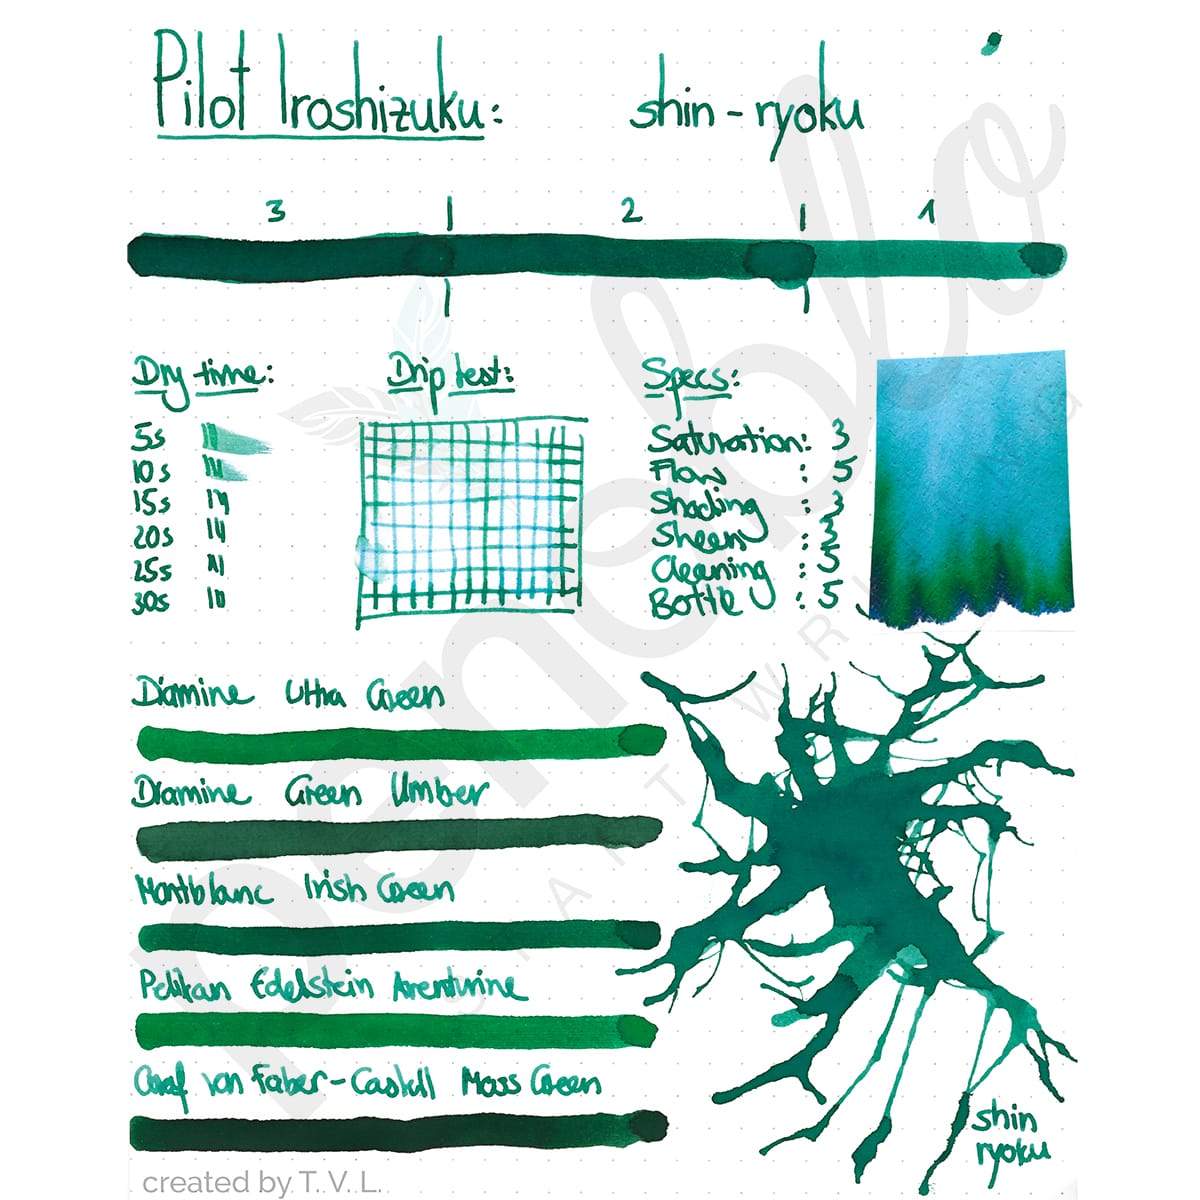 Pilot Iroshizuku: shin-ryoku
3 | 2 | 1
Dry time: Drip test: Specs:
5s
10s
15s
20s
25s
30s
Saturation: 3
Flow : 5
Shading : 3
Sheen : 3
Cleaning : 5
Bottle : 5
Diamine Ultra Green
Diamine Green Umber
Montblanc Irish Green
Pelikan Edelstein Aventurine
Graf von Faber-Castell Moss Green
shin
ryoku
penoblo
created by T. V. L.